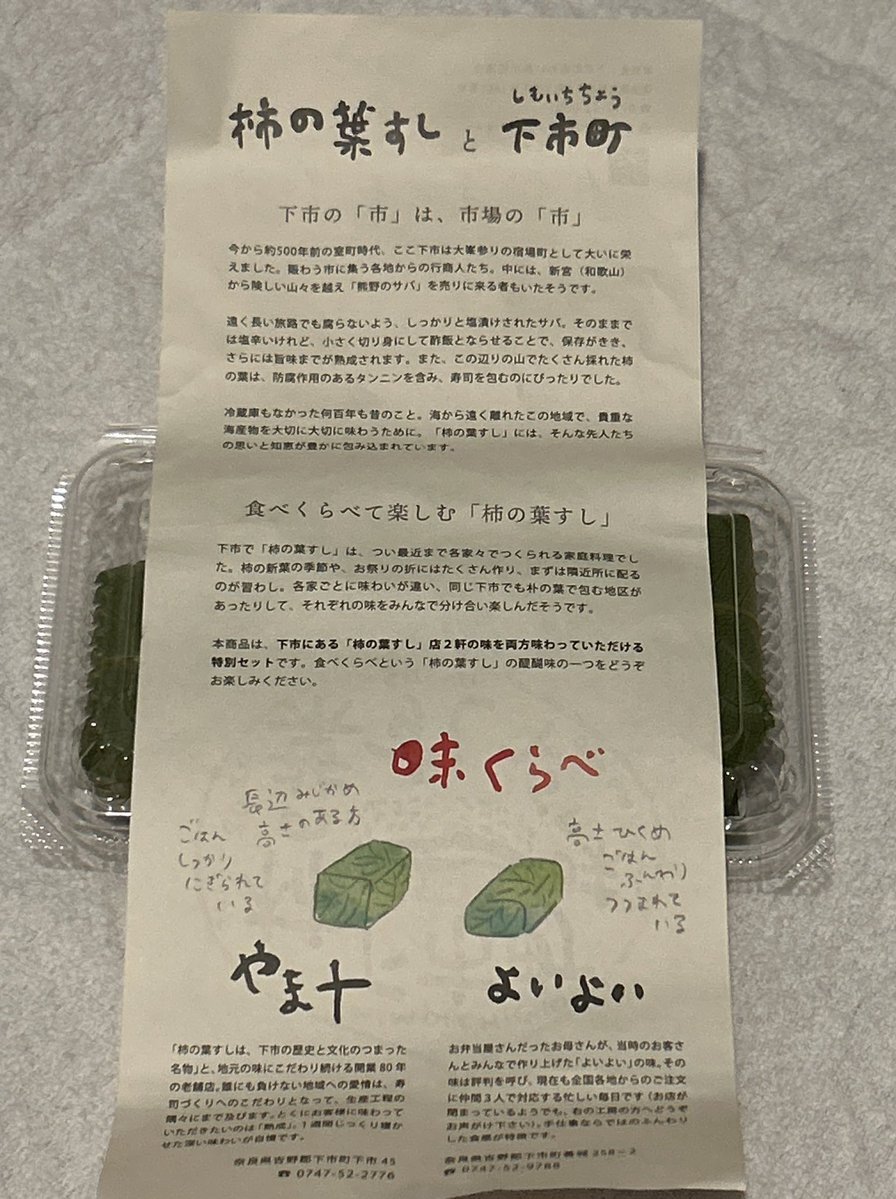 しもいちちょう
柿の葉すしと下市町
下市の「市」は、市場の「市」
今から約500年前の室町時代、ここ下市は大峯参りの宿場町として大いに栄
えました。賑わう市に集う各地からの行商人たち。中には、新宮(和歌山)
から険しい山々を越え「熊野のサバ」を売りに来る者もいたそうです。
遠く長い旅路でも腐らないよう、しっかりと塩漬けされたサバ。そのままで
は塩辛いけれど、小さく切り身にして酢飯とならせることで、保存がきき、
さらには旨味までが熟成されます。また、この辺りの山でたくさん採れた柿
の葉は、防腐作用のあるタンニンを含み、寿司を包むのにぴったりでした。
冷蔵庫もなかった何百年も昔のこと。海から遠く離れたこの地域で、貴重な
海産物を大切に大切に味わうために。「柿の葉すし」には、そんな先人たち
の思いと知恵が豊かに包み込まれています。
食べくらべて楽しむ「柿の葉すし」
下市で「柿の葉すし」は、つい最近まで各家々でつくられる家庭料理でし
た。柿の新葉の季節や、お祭りの折にはたくさん作り、まずは隣近所に配る
のが習わし。各家ごとに味わいが違い、同じ下市でも朴の葉で包む地区が
あったりして、それぞれの味をみんなで分け合い楽しんだそうです。
本商品は、下市にある「柿の葉すし」店2軒の味を両方味わっていただける
特別セットです。食べくらべという「柿の葉すし」の醍醐味の一つをどうぞ
お楽しみください。
味くらべ
長辺みじかめ
高さのある方
ごはん
しっかり
にぎられて
いる
高さひくめ
ごはん
ふんわり
つつまれて
いる
やま十
よいよい
「柿の葉すしは、下市の歴史と文化のつまった
名物」と、地元の味にこだわり続ける開業80年
の老舗店。誰にも負けない地域への愛情は、寿
司づくりへのこだわりとなって、生産工程の
隅々にまで及びます。とくにお客様に味わって
いただきたいのは「熟成」。1週間じっくり寝か
せた深い味わいが自慢です。
奈良県吉野郡下市町下市45
☎ 0747-52-2776
お弁当屋さんだったお母さんが、当時のお客さ
んとみんなで作り上げた「よいよい」の味。その
味は評判を呼び、現在も全国各地からのご注文
に仲間3人で対応する忙しい毎日です(お店が
閉まっているようでも、右の工房の方へどうぞ
お声がけ下さい)。手仕事ならではのふんわり
した食感が特徴です。
奈良県吉野郡下市町 358-2
☎ 0747-52-9788